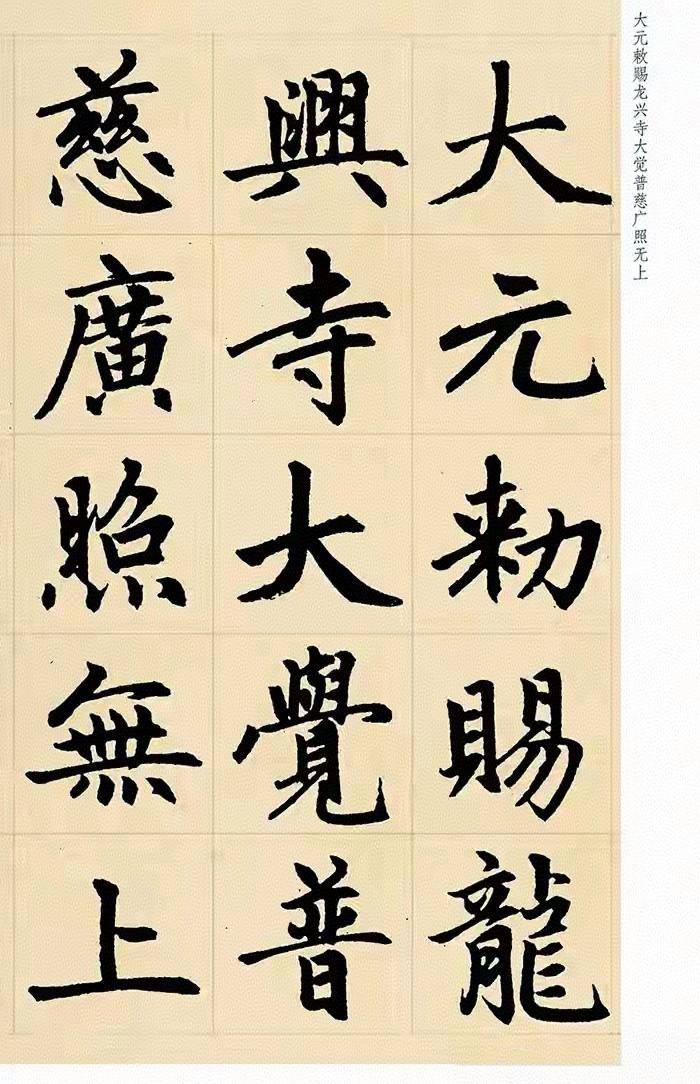 大元敕赐龙兴寺大觉普慈广照无上
大元勑賜龍
興寺大覺普
慈廣照無上